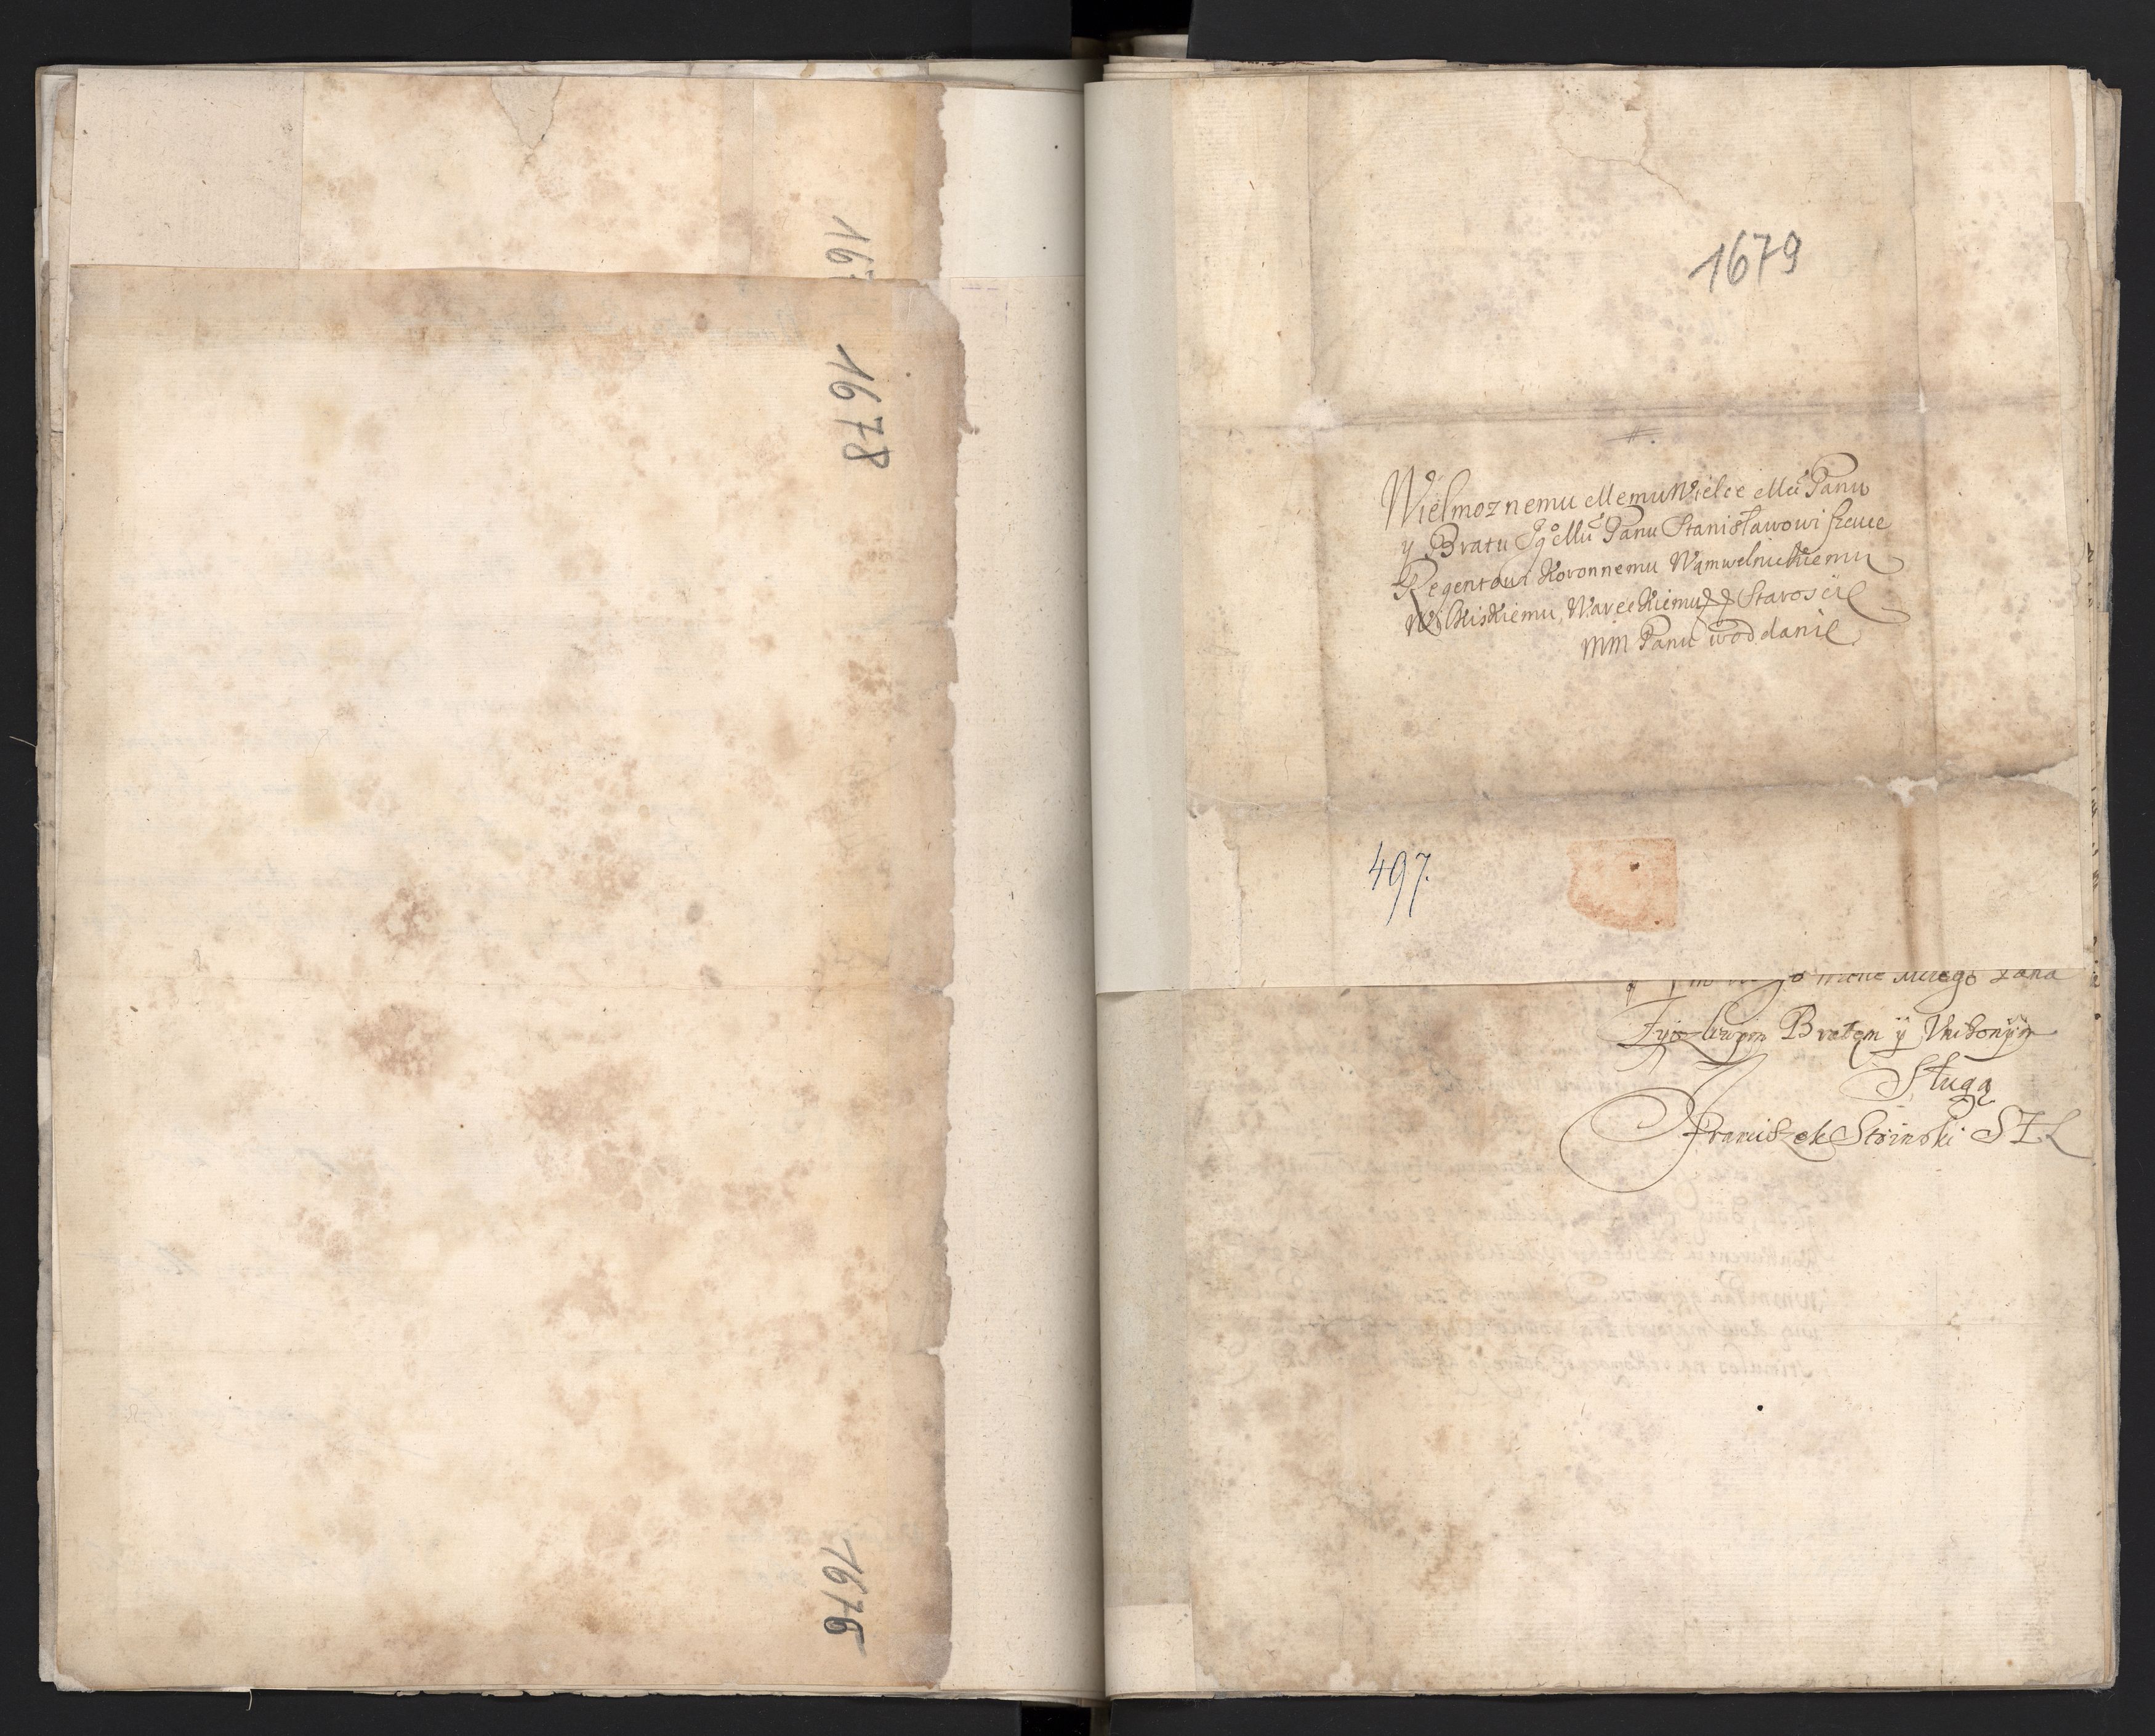 167
1678
1676
1679
Wielmoznemu Memu Wielce Mću Panu
y Bratu Jgo Mću Panu Stanisławowi Szczuce
Regentowi Koronnemu Wąmwelnickiemu
Wilkiskiemu, Wareckiemu Starosćie
MM Panu w oddanie
497.
mego Pana
Bratem ÿ Vnizonÿm
Sługą
Franciszek Stoinski S Z L